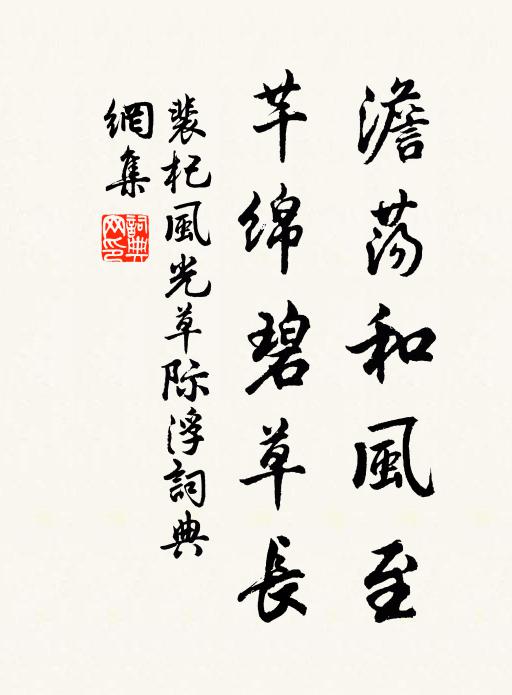 澹荡和風至
芊绵碧草長
裴杞風光草际浮詞典
網集
詞典
网印